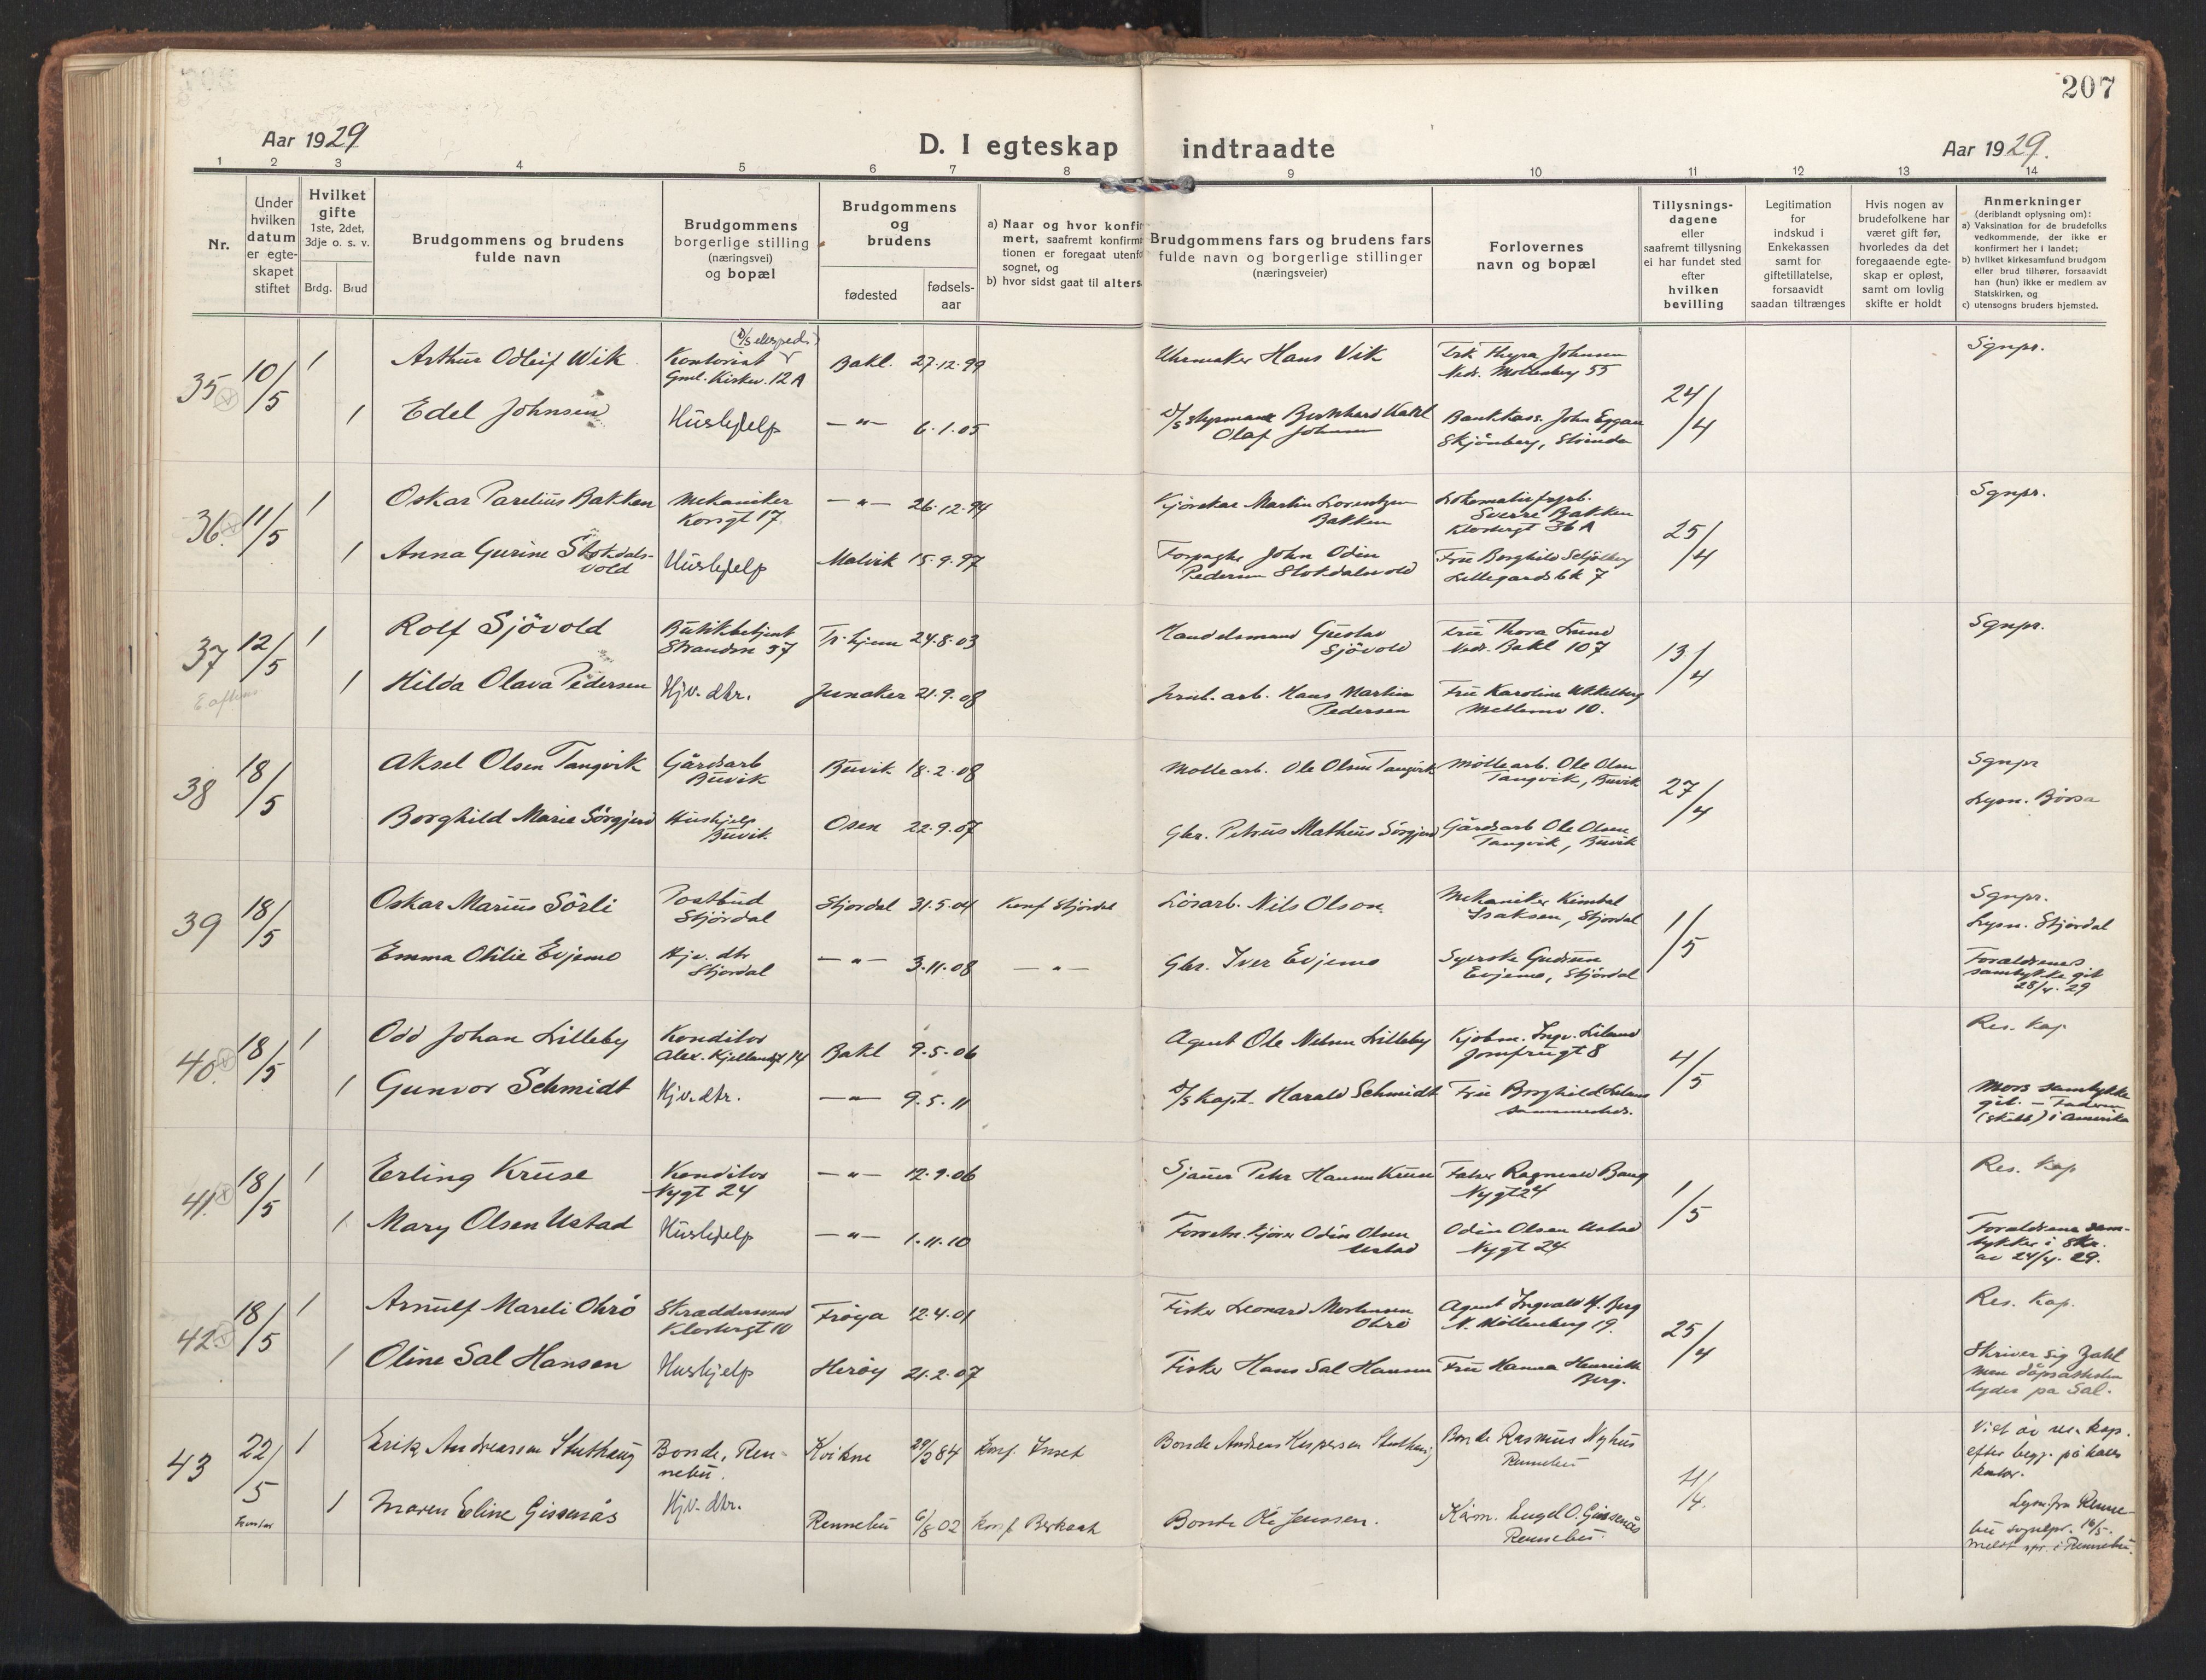 207
Aar 1929
D. I egteskap indtraadte
Aar 1929.
1 2 3 4 5 6 7 8 9 10 11 12 13 14
Nr.
Under
hvilken
datum
er egte-
skapet
stiftet
Hvilket
gifte
1ste, 2det,
3dje o. s. v.
Brdg. Brud
Brudgommens og brudens
fulde navn
Brudgommens
borgerlige stilling
(næringsvei)
og bopæl
Brudgommens
og
brudens
fødested
fødsels-
aar
a) Naar og hvor konfir
mert, saafremt konfirm
tionen er foregaat utenfo
sognet, og
b) hvor sidst gaat til alters
Brudgommens fars og brudens fars
fulde navn og borgerlige stillinger
(næringsveier)
Forlovernes
navn og bopæl
Tillysnings-
dagene
eller
saafremt tillysning
ei har fundet sted
efter
hvilken
bevilling
Legitimation
for
indskud i
Enkekassen
samt for
giftetillatelse,
forsaavidt
saadan tiltrænges
Hvis nogen av
brudefolkene har
været gift før,
hvorledes da det
foregaaende egte-
skap er opløst,
samt om lovlig
skifte er holdt
Anmerkninger
(deriblandt oplysning om):
a) Vaksination for de brudefolks
vedkommende, der ikke er
konfirmert her i landet;
b) hvilket kirkesamfund brudgom
eller brud tilhører, forsaavidt
han (hun) ikke er medlem av
Statskirken, og
c) utensogns bruders hjemsted.
35 10/5 1 Arthur Odleif Wik Kontorist Bakl. 27.12.99 Uhrmaker Hans Vik Frk Thyra Johnsen 24/4 Sgnpr.
Gml. Kirkev. 12A Nedr. Møllenberg 55
1 Edel Johnsen Hushjelp — " — 6.1.05 D/S styrmand Bernhard Kahl Bankkass. John Eggan
Olaf Johnsen Skjønberg, Strinda
36. 11/5 1 Oskar Parelius Bakken Mekaniker — " — 26.12.94 Kjørekar Martin Lorentzen 25/4 Sgnpr.
Kongt 17 Bakken Sverre Bakken
Klostergt 36 A
1 Anna Gurine Stokdals- Hushjelp Malvik 15.9.97 John Odin Fru Borghild
vold Pedersen Stokdalsvold Lillegårdsbk 7
37 12/5 1 Rolf Sjövold Butikbetjent Tr.hjem 24.8.03 Handelsmand Gustav Fru Thora Lund 13/4 Sgnpr.
Strandv 57 Sjövold Nedr. Bakl 107
E. aftens
1 Hilda Olava Pedersen Hjv. dtr. Junaker 21.9.08 Jernb. arb. Hans Martin Fru Karoline
Pedersen Mellemv 10.
38 18/5 Aksel Olsen Tangvik Gårdsarb Buvik 18.2.08 Møllearb. Ole Olsen Tangvik Møllearb. Ole Olsen 27/4 Sgnpr
Buvik Tangvik, Buvik
Lysn. Börsa
Borghild Marie Sörgjerd Hushjelp Osen 22.9.07 Gbr. Petrus Mathias Sörgjerd Gårdsarb Ole Olsen
Buvik Tangvik, Buvik
39 18/5 Oskar Marius Sörli Postbud Stjørdal 31.5.04 Konf Stjördal Lösarb. Nils Olson Mekaniker Kimbel 1/5 Sgnpr.
Stjördal Isaksen, Stjørdal Lysn. Stjördal
Emma Otilie Evjemo Hjv. dtr — " — 3.11.08 — " — Gbr. Iver Evjemo Syerske Gudrun Foreldrenes
Stjordal Evjemo, Stjördal samtykke git
28/4. 29
40. 18/5 1 Odd Johan Lilleby Konditor Bakl 9.5.06 Agent Ole Nelsen Lilleby Kjøbm. Ingv. Liland 4/5 Res. Kap
Alex. Kjellandsgt 14 Jomfrugt 8
1 Gunvor Schmidt Hjv. dtr. — " — 9.5.11 D/S Kapt. Harald Schmidt Fru Borghild Liland Mors samtykke
sammesteds. git. — Faderen
(skilt) i Amerika
41. 18/5 1 Erling Kruse Konditor — " — 12.9.06 Sjauer Peter Hansen Kruse Ragnvald Bang 1/5 Res. Kap
Nygt 24 Nygt 24
1 Mary Olsen Ustad Hushjelp — " — 1.11.10 Odin Olsen Odin Olsen Ustad Foreldrene sam-
Ustad Nygt 24 tykker i Skr.
av 24/4. 29.
42. 18/5 1 Arnulf Mareli Ohrö Skreddersvend Fröya 12.4.01 Fisker Leonard Mortensen Agent Ingvald H. Berg 25/4 Res. Kap.
Klostergt 10 Ohrö N. Möllenberg 19.
1 Oline Sal Hansen Hushjelp Heröy 21.2.07 Fisker Hans Sal Hansen Fru Hanna Henriette Skriver sig Zahl
Berg. men dåpsattesten
lyder på Sal.
43 22/5 1 Erik Andreassen Stuthaug Bonde, Ren- Kvikne 29/2 84 Konf. Inset Bonde Andreas Kaspersen Stuthaug Bonde Rasmus Nyhus 4/4. Viet av res. kap.
nebu. Rennebu efter begj. på hans
kontor.
1 Maren Eline Gissenås Hjv. dtr. Rennebu 6/8 02 konf Berkaak Bonde Ole Jenssen. Engel O. Gissenås Lysn. fra Renne-
Rennebu. bu sognepr. 16/5.
meldt spr. i Rennebu.